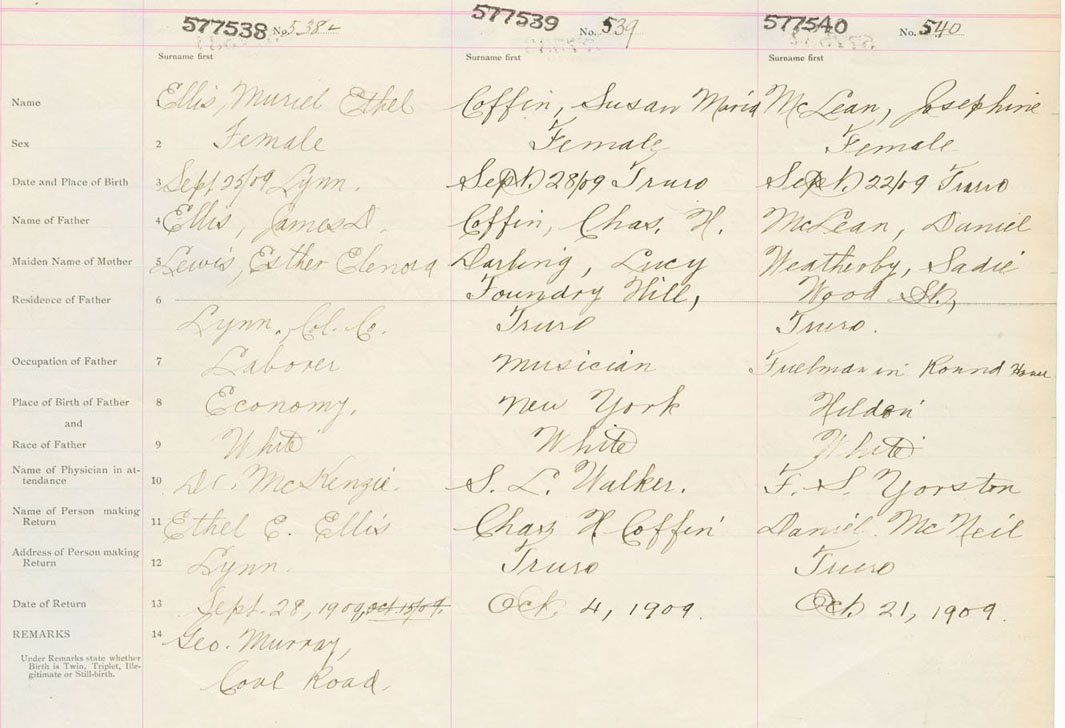 577538 No. 538 577539 No. 539 577540 No. 540
Surname first Surname first Surname first
Name Ellis, Muriel Ethel Coffin, Susan Maria McLean, Josephine
Sex 2 Female Female Female
Date and Place of Birth 3 Sept 25/09 Lynn. Sept. 28/09 Truro Sept. 22/09 Truro
Name of Father 4 Ellis, James D. Coffin, Chas. H. McLean, Daniel
Maiden Name of Mother 5 Lewis, Esther Elenora Darling, Lucy Weatherby, Sadie
Residence of Father 6 Foundry Hill, Wood St.,
Lynn, Col. Co. Truro Truro.
Occupation of Father 7 Laborer Musician Fuelman in Round House
Place of Birth of Father 8 Economy, New York Hilden
and
Race of Father 9 White White White
Name of Physician in at-
tendance 10 Dr. McKenzie. S. L. Walker. F. S. Yorston
Name of Person making
Return 11 Ethel E. Ellis Chas H Coffin Daniel McNeil
Address of Person making
Return 12 Lynn. Truro Truro
Date of Return 13 Sept. 28, 1909, Oct 15/09. Oct. 4, 1909. Oct. 21, 1909.
REMARKS 14 Geo. Murray,
Under Remarks state whether
Birth is Twin, Triplet, Ille-
gitimate or Still-birth.
Cove Road.